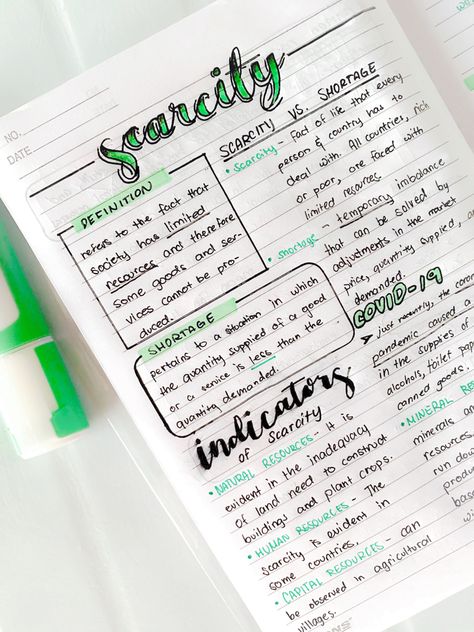 NO.
DATE
scarcity
DEFINITION
refers to the fact that
society has limited
resources and therefore
some goods and ser-
vices cannot be pro-
duced.
SHORTAGE
pertains to a situation in which
the quantity supplied of a good
or a service is less than the
quantity demanded.
SCARCITY VS. SHORTAGE
• scarcity - fact of life that every
person & country has to
deal with. All countries, rich
or poor, are faced with
limited resources.
• shortage - temporary imbalance
that can be solved by
adjustments in the market
price, quantity supplied,
demanded.
COVID-19
➤ just recently, the
pandemic caused
in the supplies
alcohols, toilet
canned goods.
indicators
of scarcity
• NATURAL RESOURCES - It is
evident in the inadequacy
of land need to construct
buildings and plant crops.
• HUMAN RESOURCES - The
scarcity is evident in
some countries.
• CAPITAL RESOURCES - can
be observed in agricultural
villages.
• MINERAL
minerals
resources.
run down